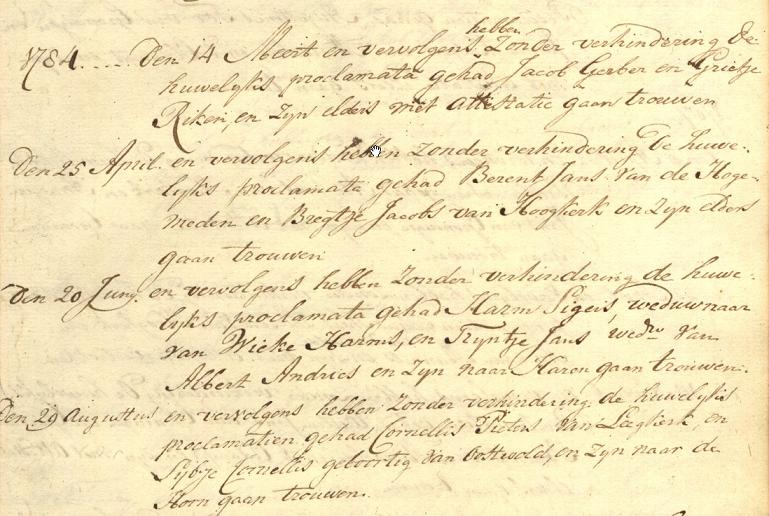 hebben
1784..... Den 14 Meert en vervolgens zonder verhindering de
huwelijks proclamata gehad Jacob Gerber en Grietje
Riken, en zijn elders met attestatie gaan trouwen
Den 25 April. en vervolgens hebben zonder verhindering de huwe-
lijks proclamata gehad Berent Jans van de Hoge-
meden en Bregtje Jacobs van Hoogkerk en zijn elders
gaan trouwen
Den 20 Juny. en vervolgens hebben zonder verhindering de huwe-
lijks proclamata gehad Harm Sigers, weduwnaar
van Wieke Harms, en Trijntje Jans wedw van
Albert Andries en zijn naar Haren gaan trouwen.
Den 29 Augustus en vervolgens hebben zonder verhindering de huwelijks
proclamatien gehad Cornellis Pieters van Leegkerk, en
Sijtje Cornellis geboortig van Oostwold, en zijn naar de
Hoorn gaan trouwen.